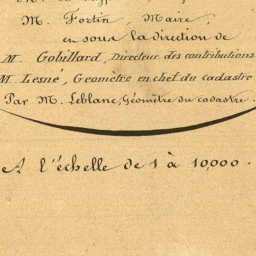 M. Fortin, Maire,
en sous la direction de
M. Gobillard, Directeur des contributions
M. Lesné, Géomètre en chef du cadastre
Par M. Leblanc, Géomètre du cadastre.
A l'échelle de 1 à 10,000.